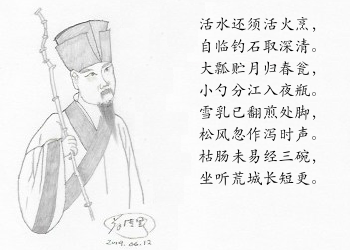 活水还须活火烹，
自临钓石取深清。
大瓢贮月归春瓮，
小勺分江入夜瓶。
雪乳已翻煎处脚，
松风忽作泻时声。
枯肠未易经三碗，
坐听荒城长短更。
2019.06.12